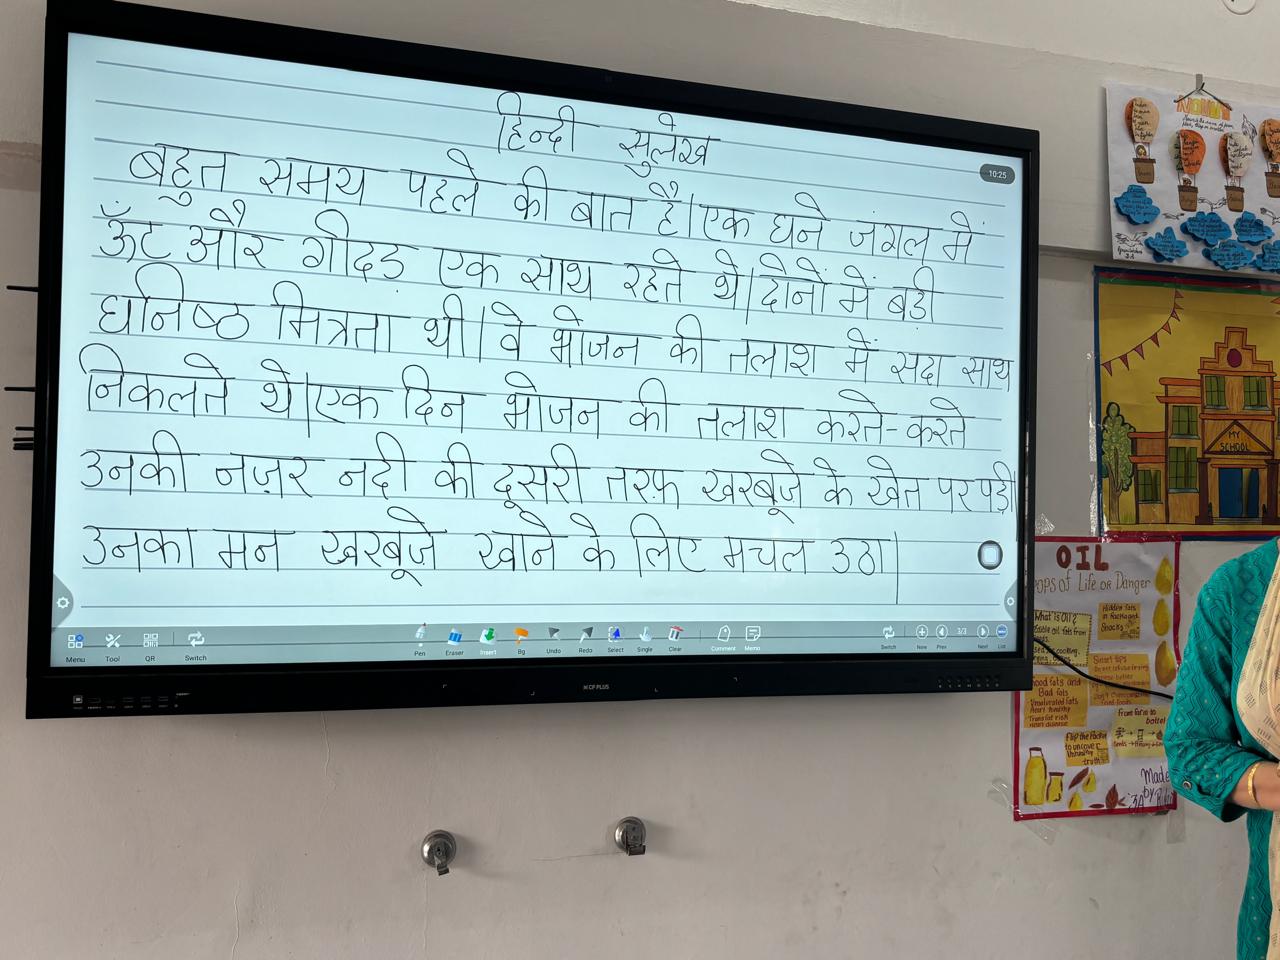 हिन्दी सुलेख
बहुत समय पहले की बात है। एक घने जंगल में
ऊँट और गीदड़ एक साथ रहते थे। दोनों में बडी
घनिष्ठ मित्रता थी। वे भोजन की तलाश में सदा साथ
निकलते थे। एक दिन भोजन की तलाश करते-करते
उनकी नज़र नदी की दूसरी तरफ़ खरबूजे के खेत पर पड़ी।
उनका मन खरबूजे खाने के लिए मचल उठा।
10:25
Menu Tool QR Switch Pen Eraser Insert Bg Undo Redo Select Single Clear Comment Memo Switch New Prev 3/3 Next List
CF PLUS
NOUN
MY
SCHOOL
OIL
Drops of Life or Danger
What is Oil?
Hidden fats
in Packed and
Snacks
Smart tips
Good fats and
Bad fats
Unsaturated fats
Heart healthy
Trans fat risk
Heart disease
From farm to
bottle
Flip the Packet
to uncover
Unhealthy
truth
Made
by
3A